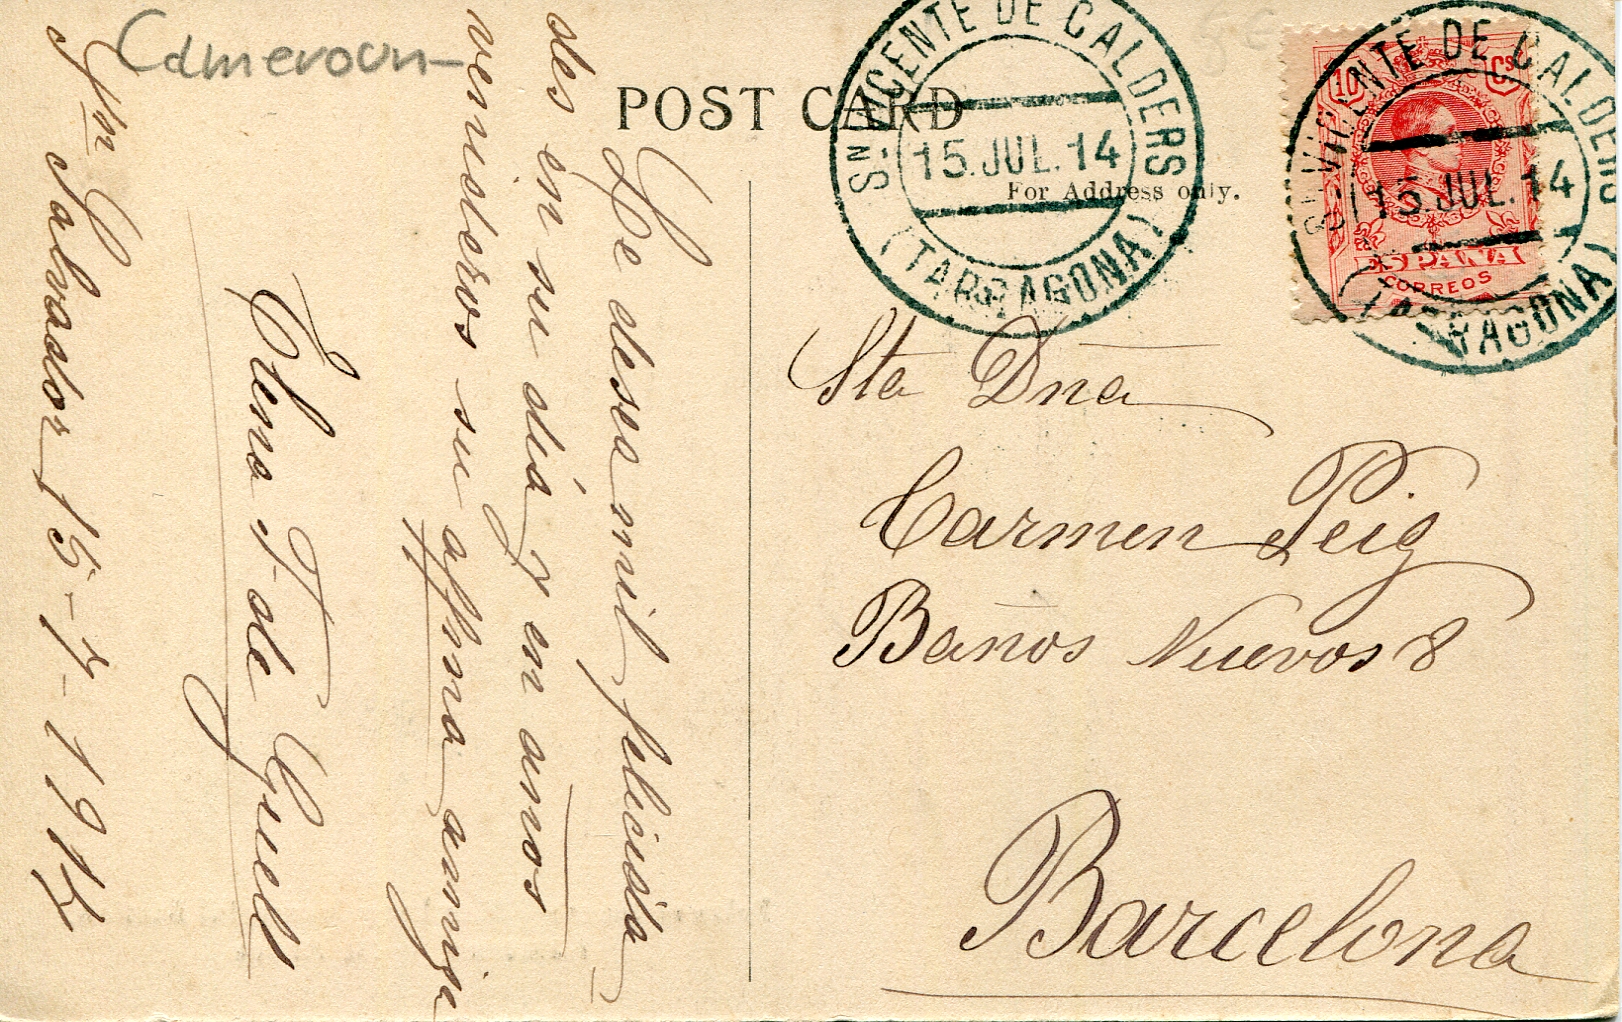 Cameroun
POST CARD
For Address only.
Sn VICENTE DE CALDERS
15.JUL.14
(TARRAGONA)
Sn VICENTE DE CALDERS
15.JUL.14
(TARRAGONA)
10 Cs
ESPAÑA
CORREOS
Le desea mil felicida-
des en su día y en años
venideros su affma amiga
Elena T. de Güell
Sn Salvador 15-7-1914
Sta Dña
Carmen Peig
Bañ​os Nuevos 8
Barcelona